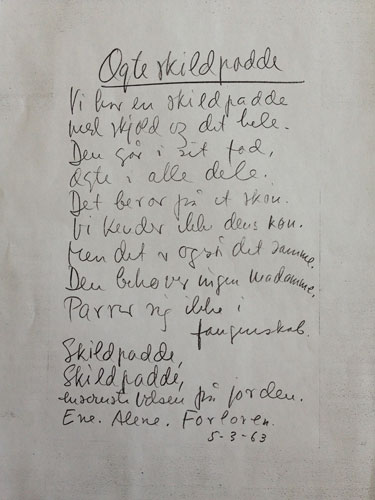 Ægte skildpadde
Vi har en skildpadde
med skjold og det hele.
Den går i sit fod,
Ægte i alle dele.
Det beror på et skøn.
Vi kender ikke dens køn.
Men det er også det samme.
Den behøver ingen madamme.
Parrer sig ikke i
fangenskab.
Skildpadde,
Skildpadde,
ensomste væsen på jorden.
Ene. Alene. Forloren.
5-3-63